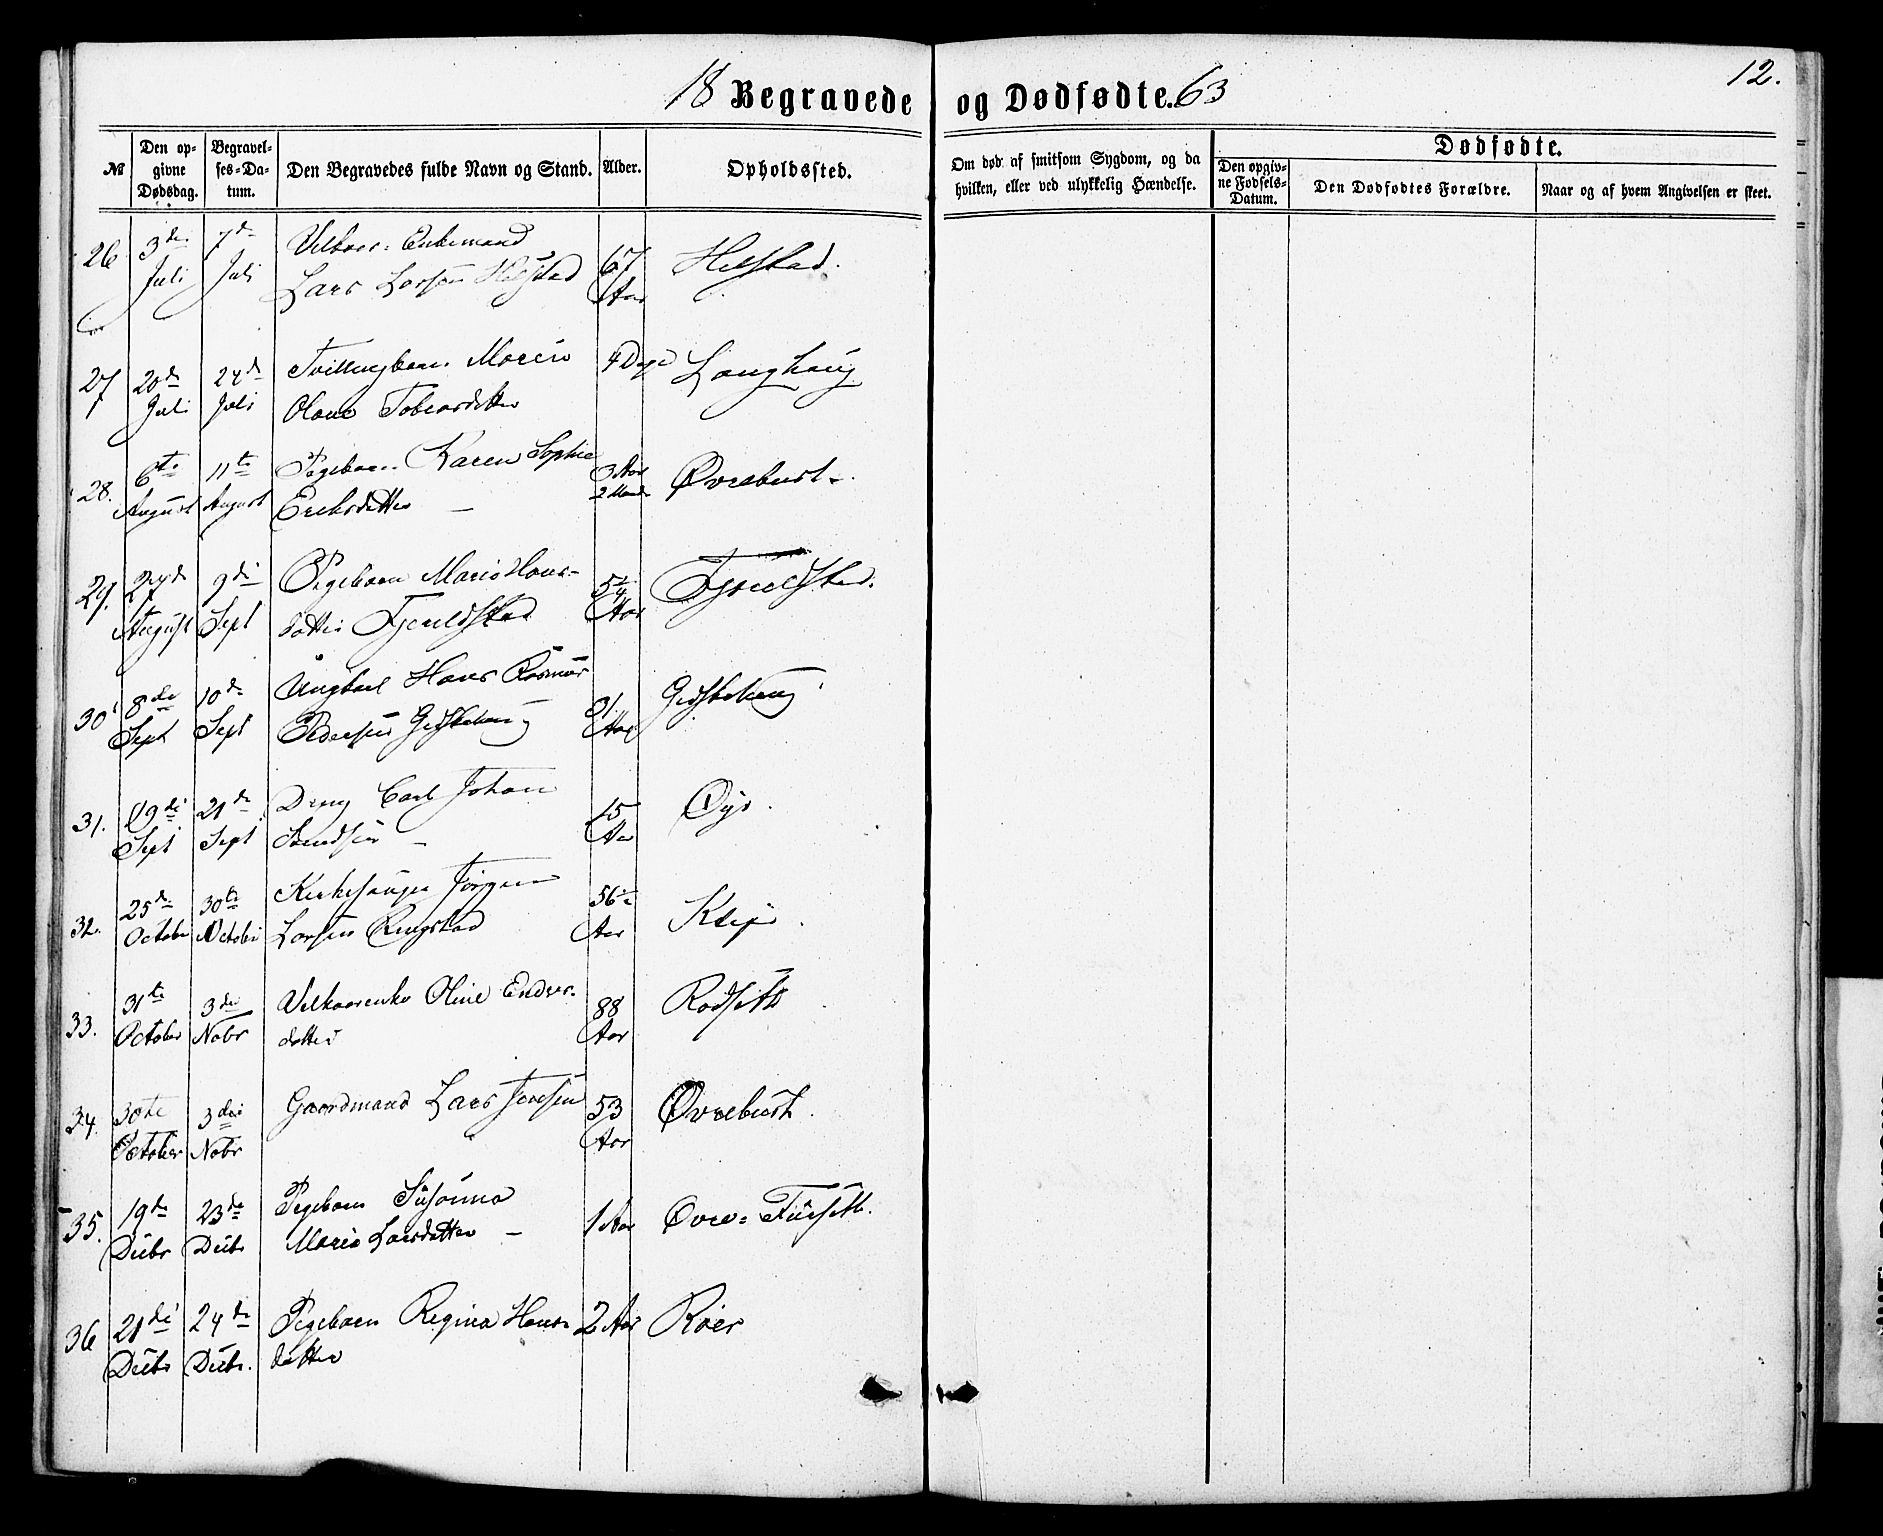 18 Begravede og Dødfødte. 63
12.
№
Den opgivne Dødsdag.
Begravelses-Datum.
Den Begravedes fulde Navn og Stand.
Alder.
Opholdssted.
Om død af smitsom Sygdom, og da hvilken, eller ved ulykkelig Hændelse.
Dødfødte.
Den opgivne Fødsels-Datum.
Den Dødfødtes Forældre.
Naar og af hvem Angivelsen er skeet.
26 3de 7de Enkemand 67 Helstad.
Juli Juli Lars Larsen Helstad Aar
27 20de 24de Tvillingbarn Maren 4 Dage Langhaug
Juli Juli Olave Tobiasdatter
28. 6te 11te Pigebarn Karen Sophie 3 Aar Øvrebust
August August Eriksdatter 2 Maan
29. 27de 9de Pigebarn Marie Hans- 5 1/4 Fjeldstad.
August Sept datter Fjeldstad Aar
30 8de 10de Ungkarl Hans Rasmus 31 Gidskehaug
Sept Sept Pedersen Gidskehaug Aar
31. 19de 21de Dreng Carl Johan 15 Øye
Sept Sept Aar
32. 25de 30te Kirkesanger Jørgen 56 Kleje
October October Larsen Ringstad Aar
33. 31te 3die Oline Enders- 88 Rødseth
October Nobr datter Aar
34. 30te 3die Gaardmand Lars Jensen 53 Øvrebust
October Nobr Aar
35. 19de 23de Pigebarn Susanna 1 Aar Øvre-Furseth.
Decbr Decbr Marie Larsdatter
36 21de 24de Pigebarn Regina Hans- 2 Aar Røer
Decbr Decbr. datter